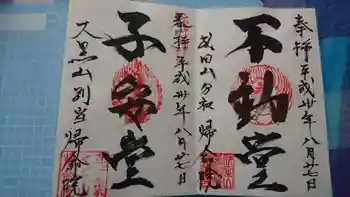 奉拝 平成卅年八月廿七日
不動堂
成田山分社 帰命院
奉拝 平成卅年八月廿七日
子安堂
大黒山別当 帰命院